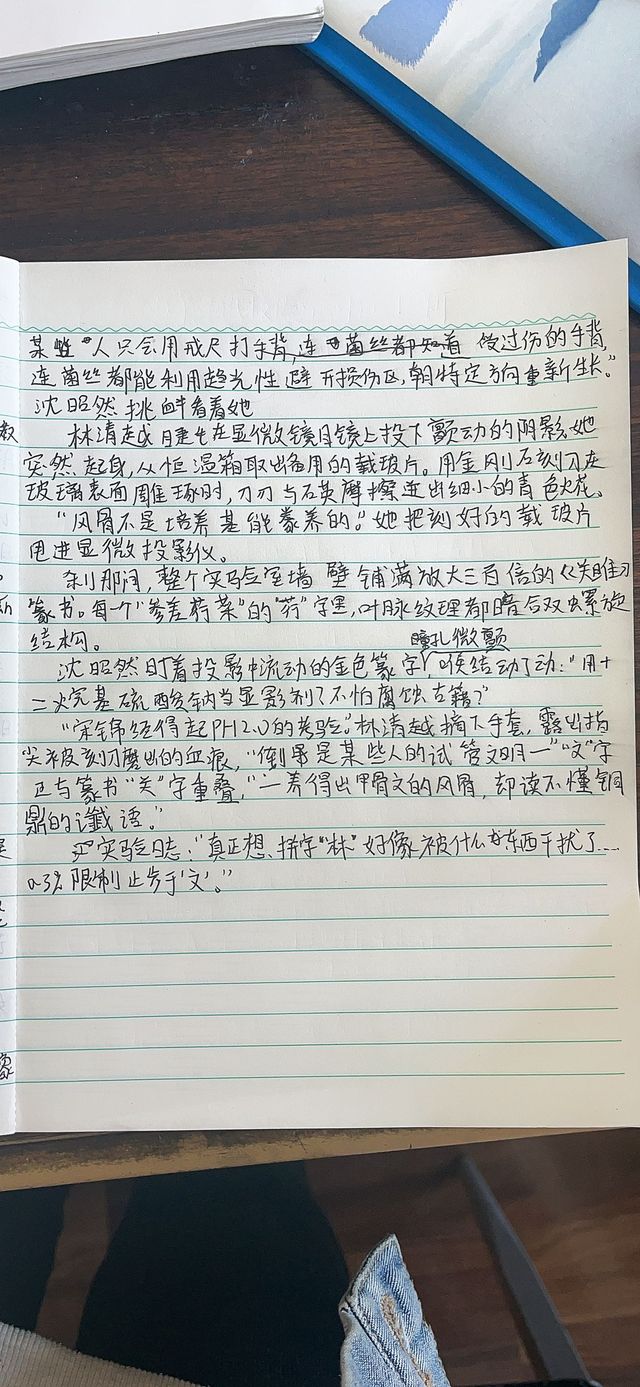 某些"人只会用戒尺打手背,连菌丝都知道 受过伤的手背,
连菌丝都能利用趋光性避开损伤区,朝特定方向重新生长。"
沈昭然挑眸看着她
林清越睫毛在显微镜目镜上投下颤动的阴影,她
突然起身,从恒温箱取出备用的载玻片。用金刚石刻刀在
玻璃表面雕琢时,刀刃与石英摩擦迸出细小的青色火花。
"风骨不是培养基能豢养的。"她把刻好的载玻片
甩进显微投影仪。
刹那间,整个实验室墙壁铺满放大三百倍的《关雎》
篆书。每一个"参差荇菜"的"荇"字里,叶脉纹理都暗合双螺旋
结构。
瞳孔微颤
沈昭然盯着投影中流动的金色篆字,喉结动了动:"用十
二烷基硫酸钠当显影剂?不怕腐蚀古籍?"
"宋锦经得起PH2.0的考验。"林清越摘下手套,露出指
尖被刻刀磨出的血痕,"倒是某些人的试管文明—""文"字
正与篆书"关"字重叠,"—养得出甲骨文的风骨,却读不懂铜
鼎的谶语。"
实验日志:"真正想拼字"林"好像被什么东西干扰了……
0.3%限制止步于'文'。"
教
象